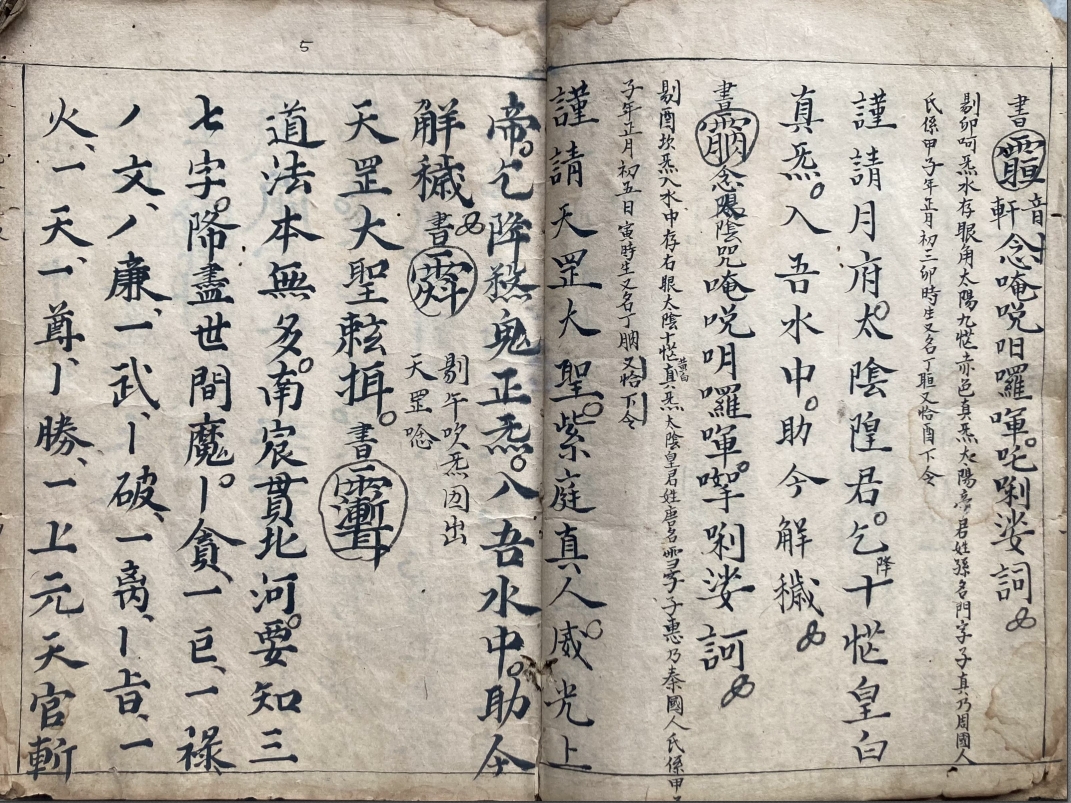 書 音軒 念唵哾呾囉㖞。吒唎娑訶
剔卯呵炁水存眼角太陽九恠赤色真炁太陽帝君姓孫名開字子真乃周國人
氏係甲子年正月初三卯時生又名丁䀏又恰酉下令
謹請月府太陰皇君。乞降十恠皇白
真炁。入吾水中。助今解穢
書 念太陰咒唵哾明囉㖞。㗛唎娑訶
剔酉坎炁入水中存右眼太陰十恠黃白真炁太陰皇君姓唐名字子惠乃秦國人氏係甲
子年正月初五日寅時生又名丁䏰又恰下令
謹請天罡大聖。紫庭真人。威光上
帝。乞降煞鬼正炁。入吾水中。助今
解穢 書 剔午吹炁因出
天罡唸
天罡大聖䡓揖。書
道法本無多。南宸貫北河。要知三
七字。降盡世間魔。丨貪、一巨、一祿、
丿文、丿廉、一武、丨破、一离、丨旨、一
火、一天、一尊、丿勝、一上元天官斬
5